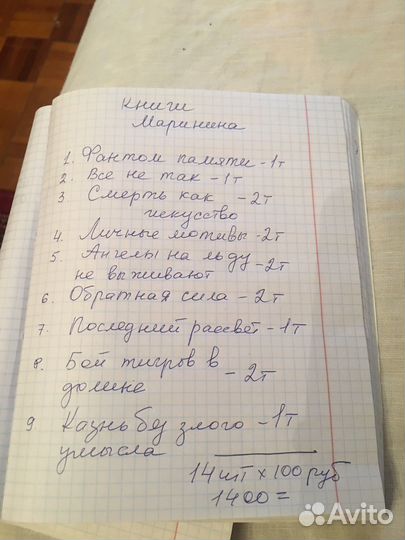 Книги
Маринина
1. Фантом памяти - 1т
2. Все не так - 1т
3 Смерть как - 2т
искусство
4. Личные мотивы - 2т
5. Ангелы на льду - 2т
не выживают
6. Обратная сила - 2т
7. Последний рассвет - 1т
8. Бой тигров в - 2т
долине
9 Казнь без злого - 1т
умысла
14 шт х 100 руб
1400 =
Avito